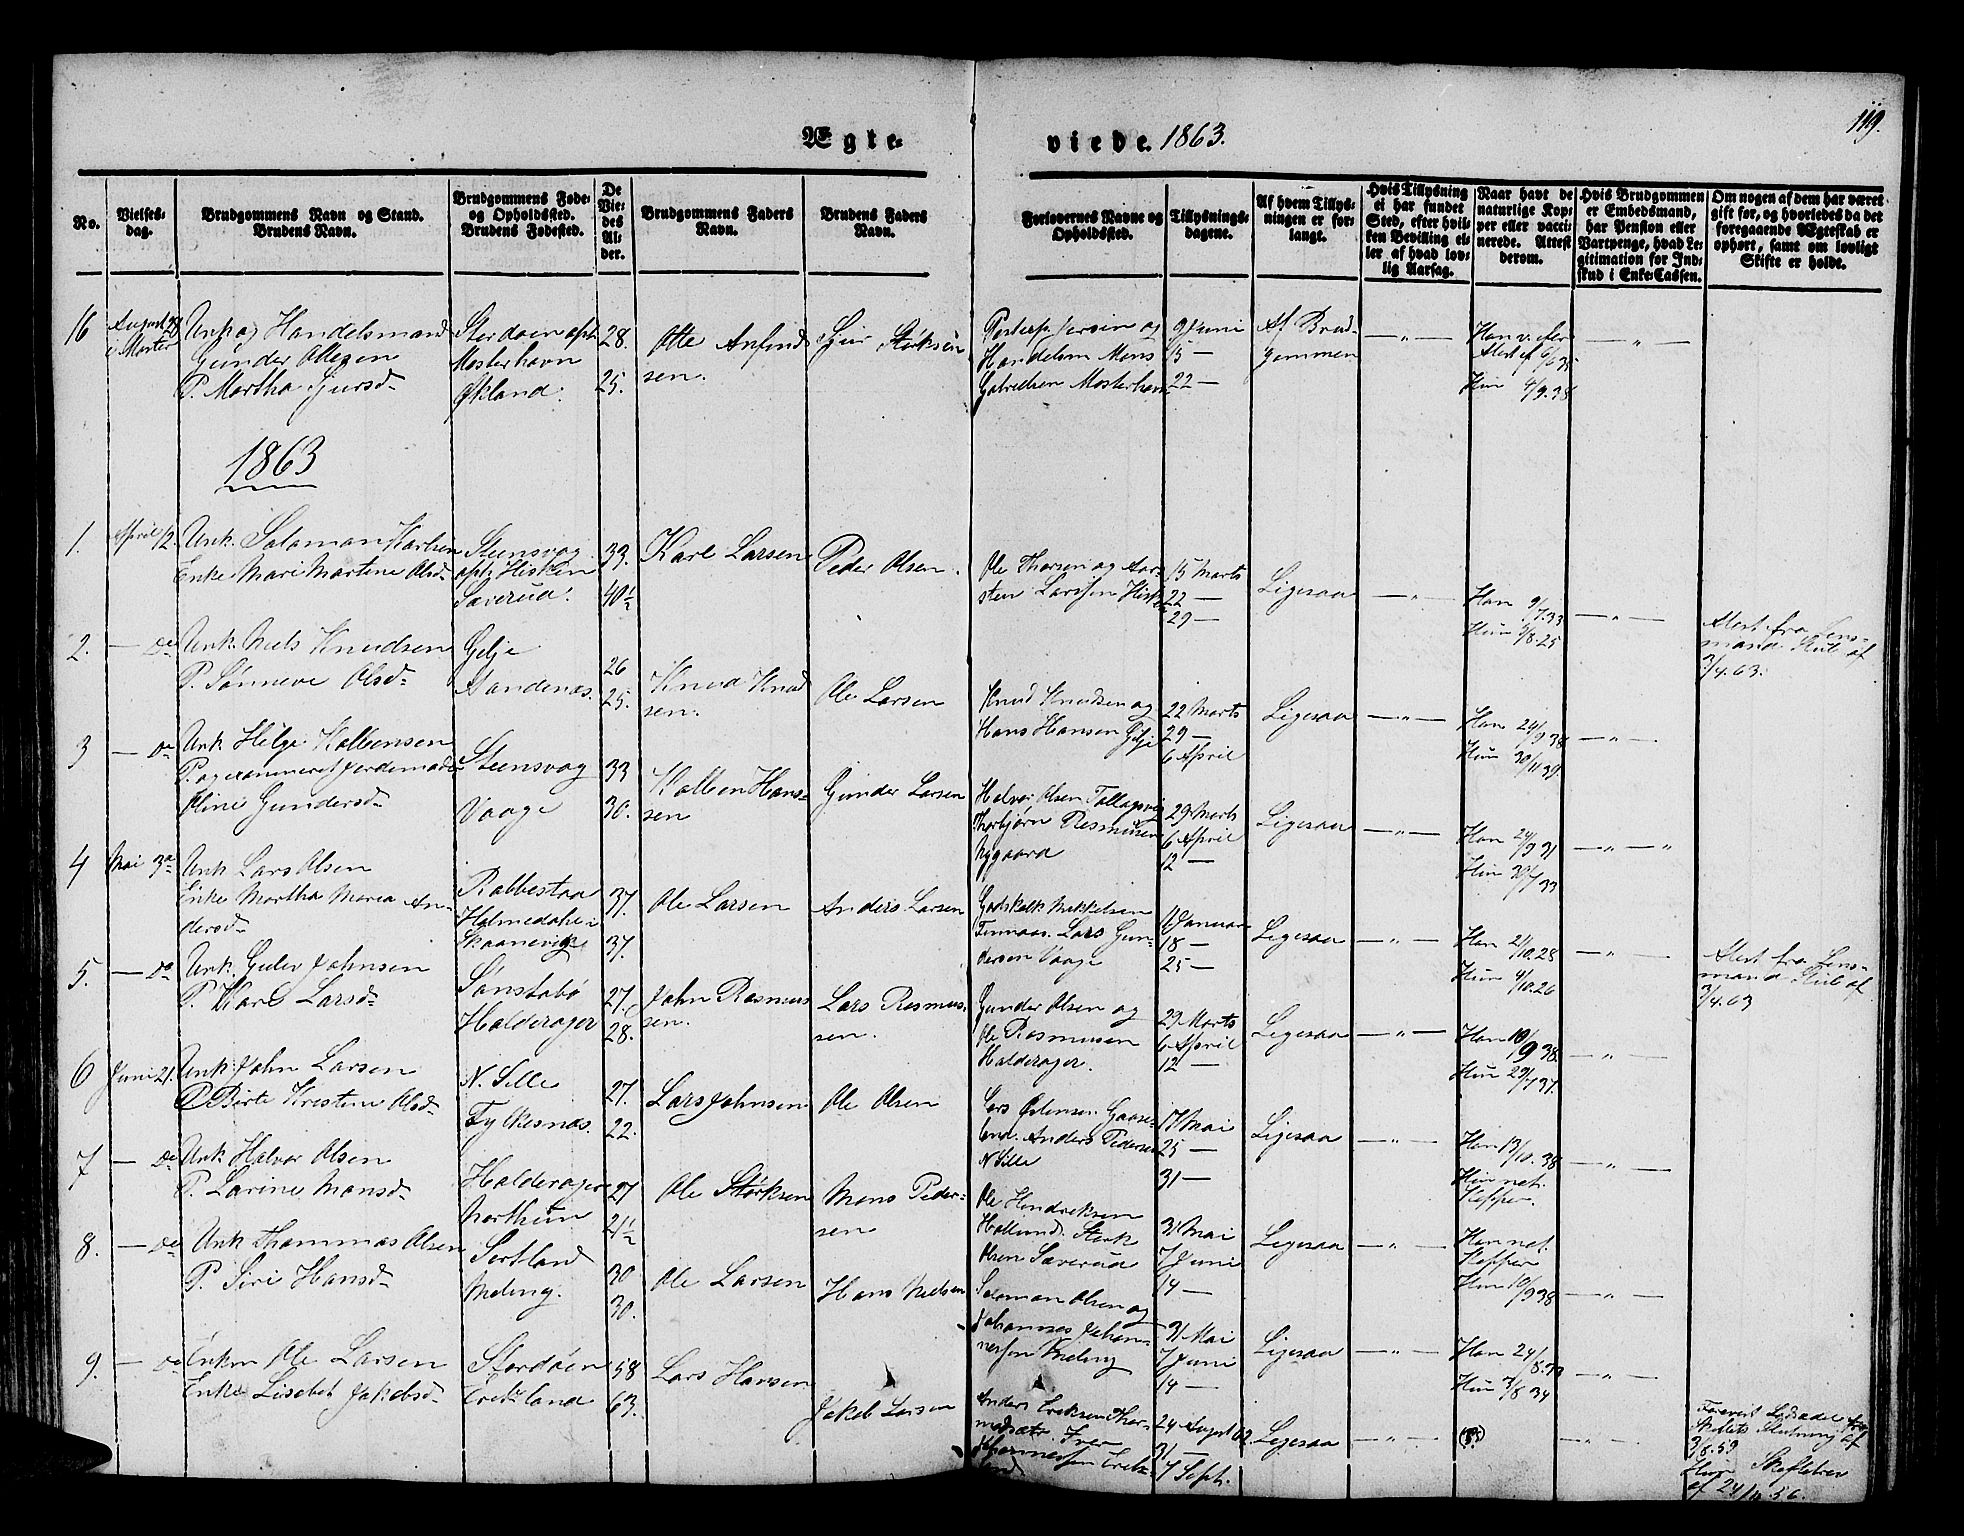 119.
Ægte-
viede. 1863.
No.
Vielses-
dag.
Brudgommens Navn og Stand.
Brudens Navn.
Brudgommens Føde-
og Opholdssted.
Brudens Fødested.
De
Vie-
des
Al-
der.
Brudgommens Faders
Navn.
Brudens Faders
Navn.
Forlovernes Navne og
Opholdssted.
Tillysnings-
dagene.
Af hvem Tillys-
ningen er for-
langt.
Hvis Tillysning
ei har fundet
Sted, efter hvil-
ken Bevilling el-
ler af hvad lov-
lig Aarsag.
Naar havt de
naturlige Kop-
per eller vacci-
nerede. Attest
derom.
Hvis Brudgommen
er Embedsmand,
har Pension eller
Vartpenge, hvad Le-
gitimation for Ind-
skud i Enke-Cassen.
Om nogen af dem har været
gift før, og hvorledes da det
foregaaende Ægteskab er
ophørt, samt om lovligt
Skifte er holdt.
16
August 28
i Moster
Unk og Handelsmand
Gunder Ottesen
P. Martha Gursd.
Stordøen opt
Mosterhavn
Økland.
28.
25.
Otte Anfind
sen.
Størksen
og
Handelsm Mons
Gabrielsen Mosterhavn
9 Juni
15 —
22 —
Af Brud-
gommen
— " —
Hun 4/9.38
— " —
1863
1.
April 12.
Unk. Salamon Karlsen
Enke Mari Martine Olsd.
Steensvag
opt Hisken
Saverud.
33.
40½
Karl Larsen
Peder Olsen.
Ole Thorsen og Aar-
sten Larssen Hisk
15 Marts
22 —
29 —
Ligesaa
— " —
Han 9/7.33
Hun 9/8.25
— " —
Atest fra Lens-
mand af
3/4.63.
2.
— do
Unk. Niels Knudsen
P. Sønneve Olsd.
Gilje
Sandenæs.
26
25.
Knud Knud
sen.
Ole Larsen
Knud Knudsen og
Hans Hansen Gilje
22 Marts
29 —
6 April
Ligesaa
— " —
Han 24/9 38
Hun 30/11 39.
— " —
3
— do
Unk Helge Kolbensen
P. Jordemoder
Oline Gundersd.
Steensvag
Vaage
33
30.
Kolben Hans-
sen
Gunder Larsen
Halvor Olsen
Thorbjørn Rasmusen
Nygaard
29 Marts
6 April
12 —
Ligesaa
— " —
Han 24/9 31
Hun 30/7 33
— " — "
4
Mai 3die
Unk Lars Olsen
Enke Martha Maria An-
dersd.
Rabbestaa
Holmedahl i
Skaanevig
37.
37.
Ole Larsen
Anders Larsen
Godskalk Mikkelsen
Finnaas. Lars Gun-
dersen Vaage
11 Januar
18 —
25 —
Ligesaa
— " —
Han 21/10.28
Hun 4/10.26
— " —
Atest fra Lens-
mand af
3/4.63
5.
— do
Unk. Gulev Johnsen
P. Kari Larsd.
Sønstabø
Halderager
27.
28.
John Rasmus
sen.
Lars Rasmus-
sen.
Gunder Olsen og
Ole Rasmusen
Halderager.
29 Marts
6 April
12 —
Ligesaa
— " —
Han 10/9 38.
Hun 29/7 37.
— " —
6
Juni 21.
Unk. John Larsen
P Birte Kristine Olsd.
N. Sille
Fykesnæs.
27.
22.
Lars Johnsen
Ole Olsen
Lars Østensen Gaase-
land. Anders Pedersen
N Sille
17 Mai
25 —
31 —
Ligesaa
— " —
Han 13/10.38
Hun nat.
Kopper.
— " —
7
— do
Unk Halvor Olsen
P. Larine Monsd.
Halderager
Northun
27
21½
Ole Størksen
Mons Peder-
sen
Ole Hendriksen
Hollund. Størk
Olsen Saverud
31 Mai
7 Juni
14 —
Ligesaa
— " —
Han nat.
Kopper
Hun 10/9 38
— " —
8.
— do
Unk Thommas Olsen
P. Siri Hansd.
Sortland
Meling.
30
30.
Ole Larsen
Hans Nielsen
Salomon Olsen og
Johannes Johan-
nessen Meling
31 Mai
7 Juni
14 —
Ligesaa
— " —
Han 24/8.33
Hun 3/8 34
— " —
9.
— do
Enkm Ole Larsen
Enke Lisebet Jakobsd.
Stordøen
Ereksland
58
63.
Lars Hansen
Jakob Larsen
Anders Ereksen Thor-
modsæter. Iver
Johannessen Ereks-
land
24 August 62.
31 —
7 Sept.
Ligesaa
— " —
— " —
Skiftets Slutning af
3/8.59
Hun Skiftebrev
af 24/11.56.